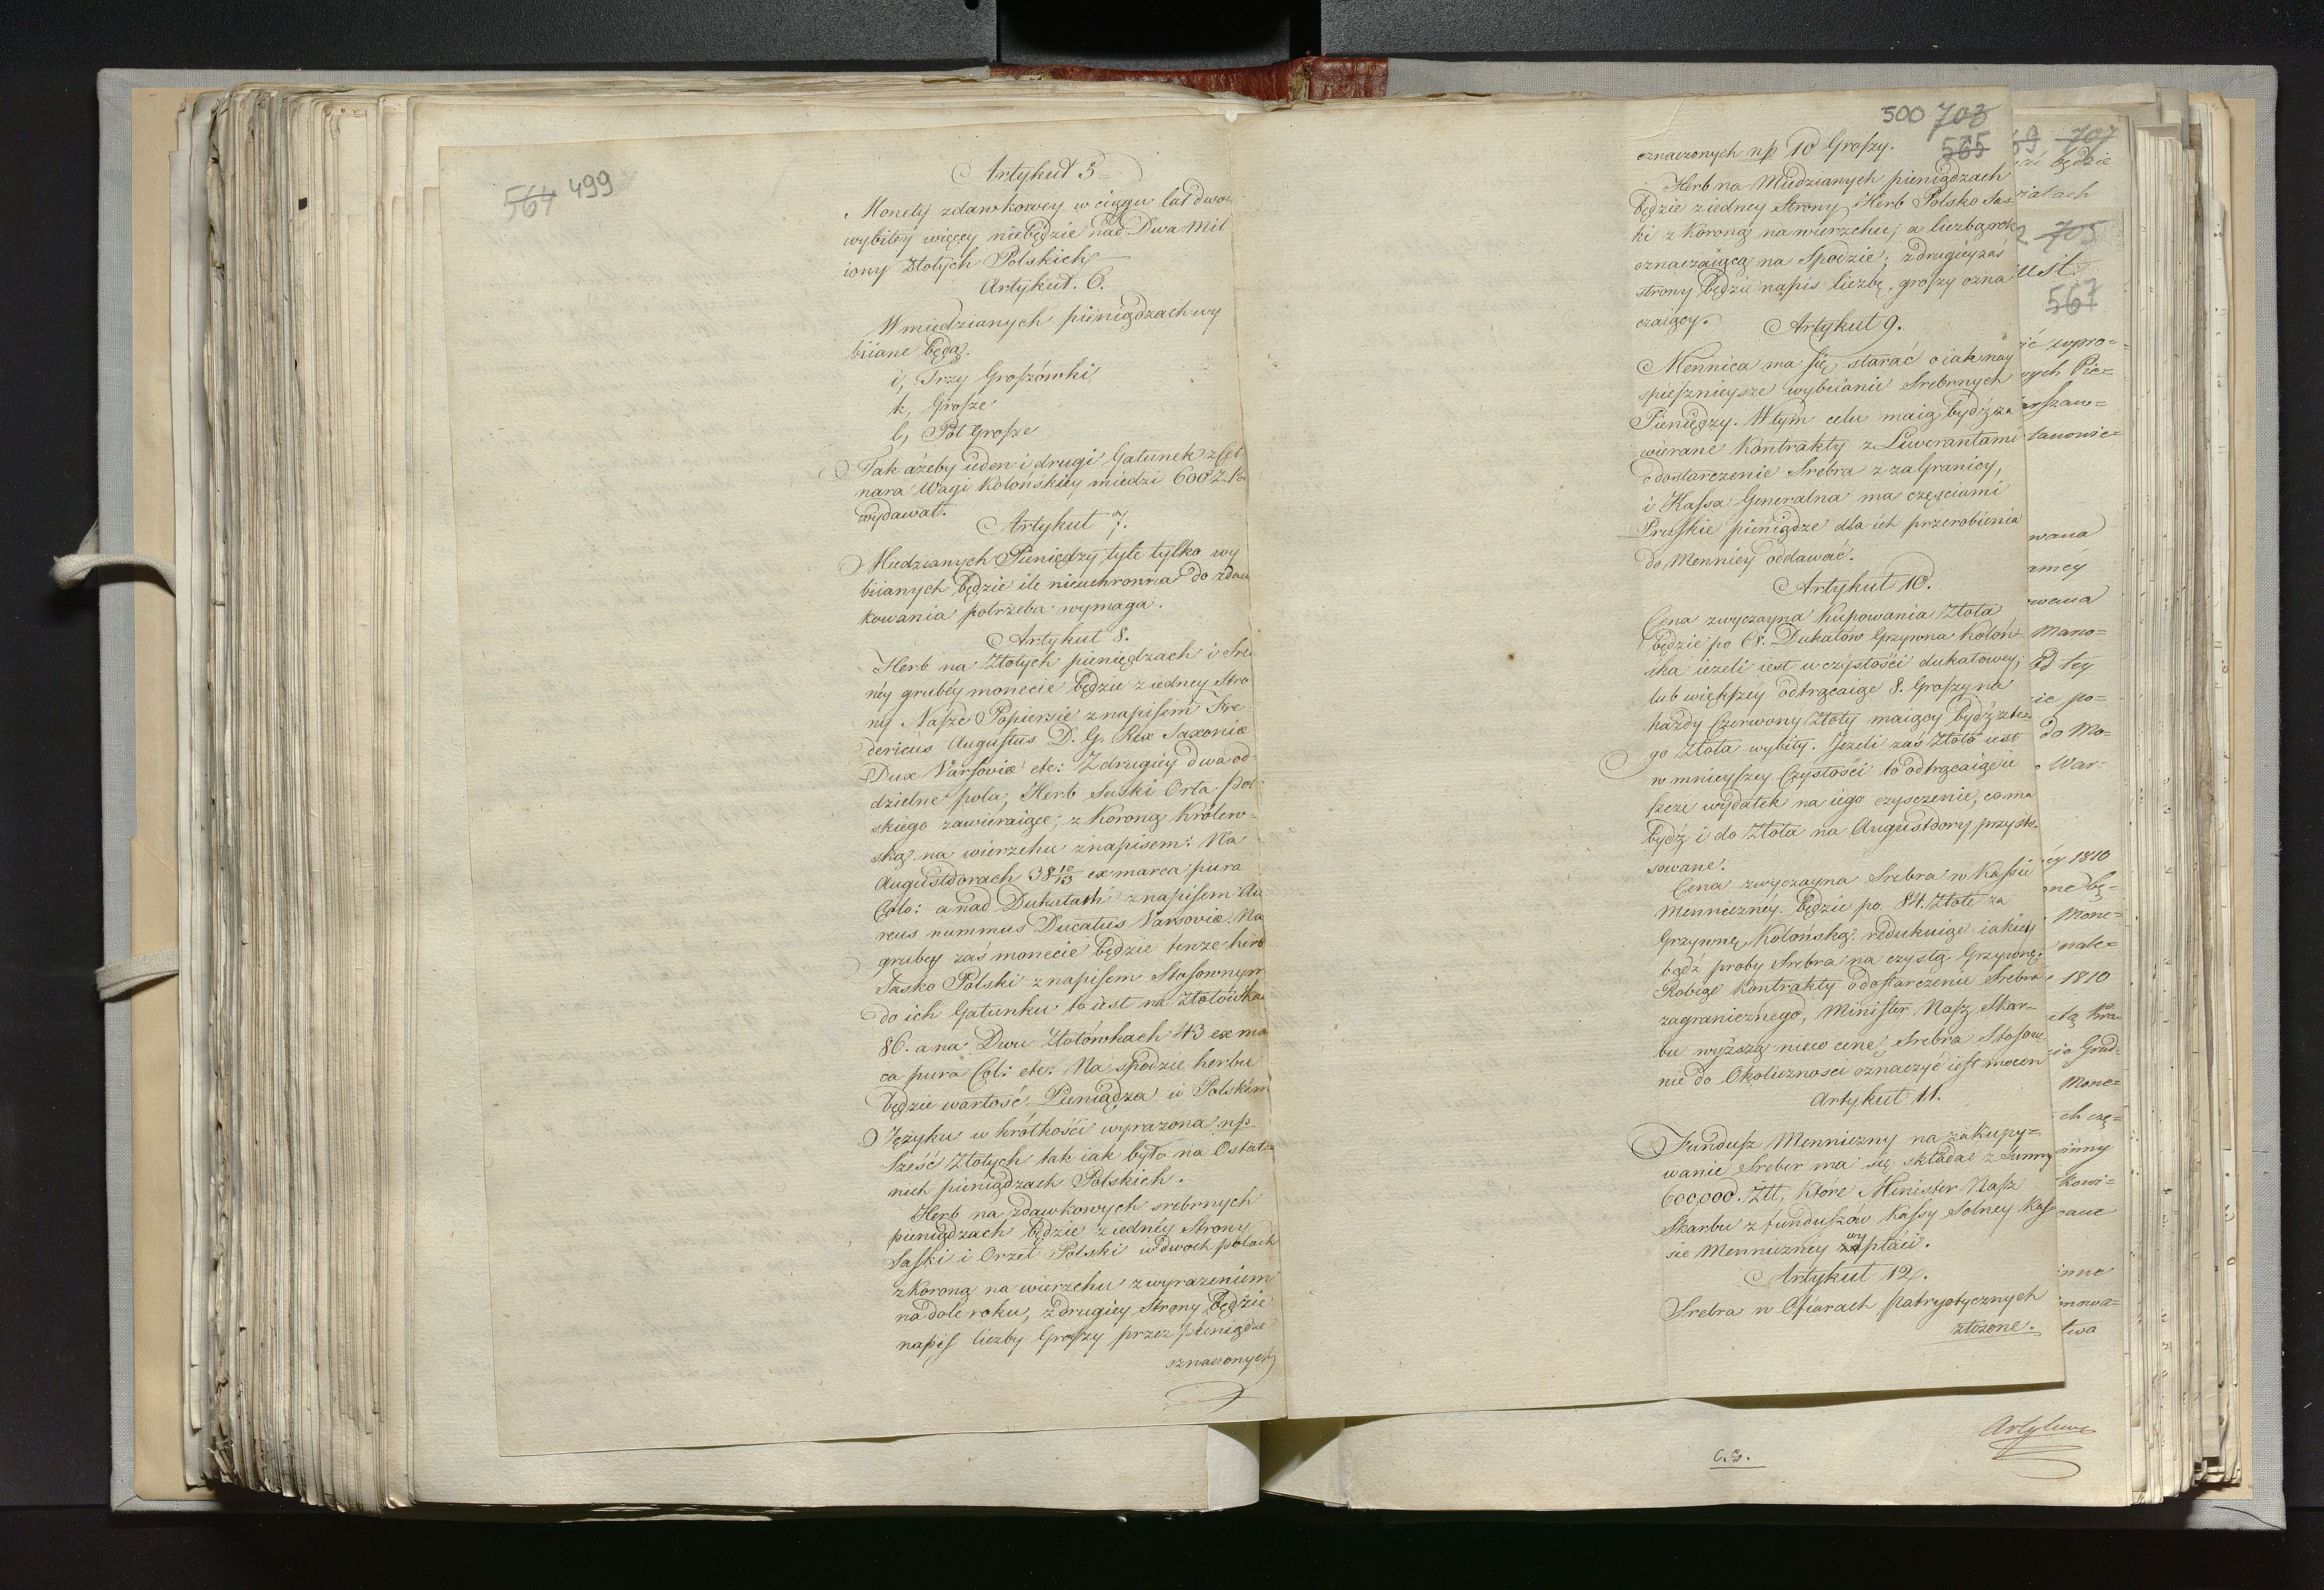 564 499
Artykuł 5
Monety zdawkowey w ciągu lat dwóch
wybitey więcey niebędzie nad Dwa Mil
iony Złotych Polskich
Artykuł. 6.
W miedzianych pieniądzach wy
biiane będą.
i, Trzy Groszówki
k, Grosze
l, Pół Grosze
Tak ażeby ieden i drugi Gatunek z Cet
nara Wagi Kolońskiey miedzi 600 Z
wydawał.
Artykuł 7.
Miedzianych Pieniędzy tyle tylko wy
biianych będzie ile nieuchronna do zdaw
kowania potrzeba wymaga.
Artykuł 8.
Herb na Złotych pieniądzach i Sreb
néy grubéy monecie będzie z iedney Stro
ny Nasze Popiersie z napisem Fre
dericus Augustus D. G. Rex Saxoniæ
Dux Varsoviæ etc: Z drugiey dwa od
dzielne pola, Herb Saski Orła Pol
skiego zawieraiące, z Koroną Królew-
ską na wierzchu z napisem: Na
Augustdorach 38 10/13 ex marca pura
Colo: a nad Dukatach z napisem Au
reus nummus Ducatus Varsoviæ. Na
grubey zaś monecie będzie tenże herb
Sasko Polski z napisem Stosownym
do ich Gatunku to iest na Złotówkach
86. a na Dwu Złotówkach 43 ex mar
ca pura Col: etc: Na spodzie herbu
będzie wartość Pieniądza w Polskim
Języku w krótkości wyrażona np
Sześć Złotych tak iak było na Ostat=
nich pieniądzach Polskich.
Herb na zdawkowych srebrnych
pieniądzach będzie z iednéy Strony
Saski i Orzeł Polski w dwóch polach
z Koroną na wierzchu z wyrażeniem
na dole roku, z drugiey Strony będzie
napis liczby Groszy przez pieniądze
oznaczonych
500 703
565
oznaczonych np 10 Groszy.
Herb na Miedzianych pieniądzach
będzie z iedney Strony Herb Polsko Sas
ki z Koroną na wierzchu, a liczbą rok
oznaczaiącą na Spodzie, z drugiey zaś
strony będzie napis liczbę groszy ozna
czaiący.
Artykuł 9.
Mennica ma się starać o iak nay
śpieszniejsze wybiianie Srebrnych
Pieniędzy. W tym celu maią bydź za
wierane Kontrakty z Liwerantami
o dostarczenie Srebra z za Granicy,
i Kassa Generalna ma częściami
Pruskie pieniądze dla ich przerobienia
do Mennicy oddawać.
Artykuł 10.
Cena zwyczayna Kupowania Złota
będzie po 68. Dukatów Grzywna Koloń-
ska ieżeli iest w czystości dukatowey,
lub większéy odtrącaiąc 8. Groszy na
każdy Czerwony Złoty maiący bydź z te-
go Złota wybity. Jeżeli zaś Złoto iest
w mnieyszey Czystości to odtrącaią ie
szcze wydatek na iego czyszczenie, co ma
bydź i do Złota na Augustdory przysto-
sowane.
Cena zwyczayna Srebra w Kassie
Menniczney będzie po 84. Złote za
Grzywnę Kolońską redukuiąc iakiey
bądź proby Srebra na czystą Grzywnę.
Robiąc Kontrakty o dostarczenie Srebra
zagranicznego, Minister Nasz Skar-
bu wyższą nieco cenę Srebra Stosow
nie do Okoliczności oznaczyć iest mocen
Artykuł 11.
Fundusz Menniczny na zakupy=
wanie Sreber ma się składać z Summy
600,000. Złl, które Minister Nasz
Skarbu z funduszów Kassy Solney Kas
sie Menniczney wypłaci.
Artykuł 12.
Srebra w Ofiarach patryotycznych
złożone.
707
będzie
705
567
wpro=
1810
Mone=
1810
Grud-
Mone=
c.s.